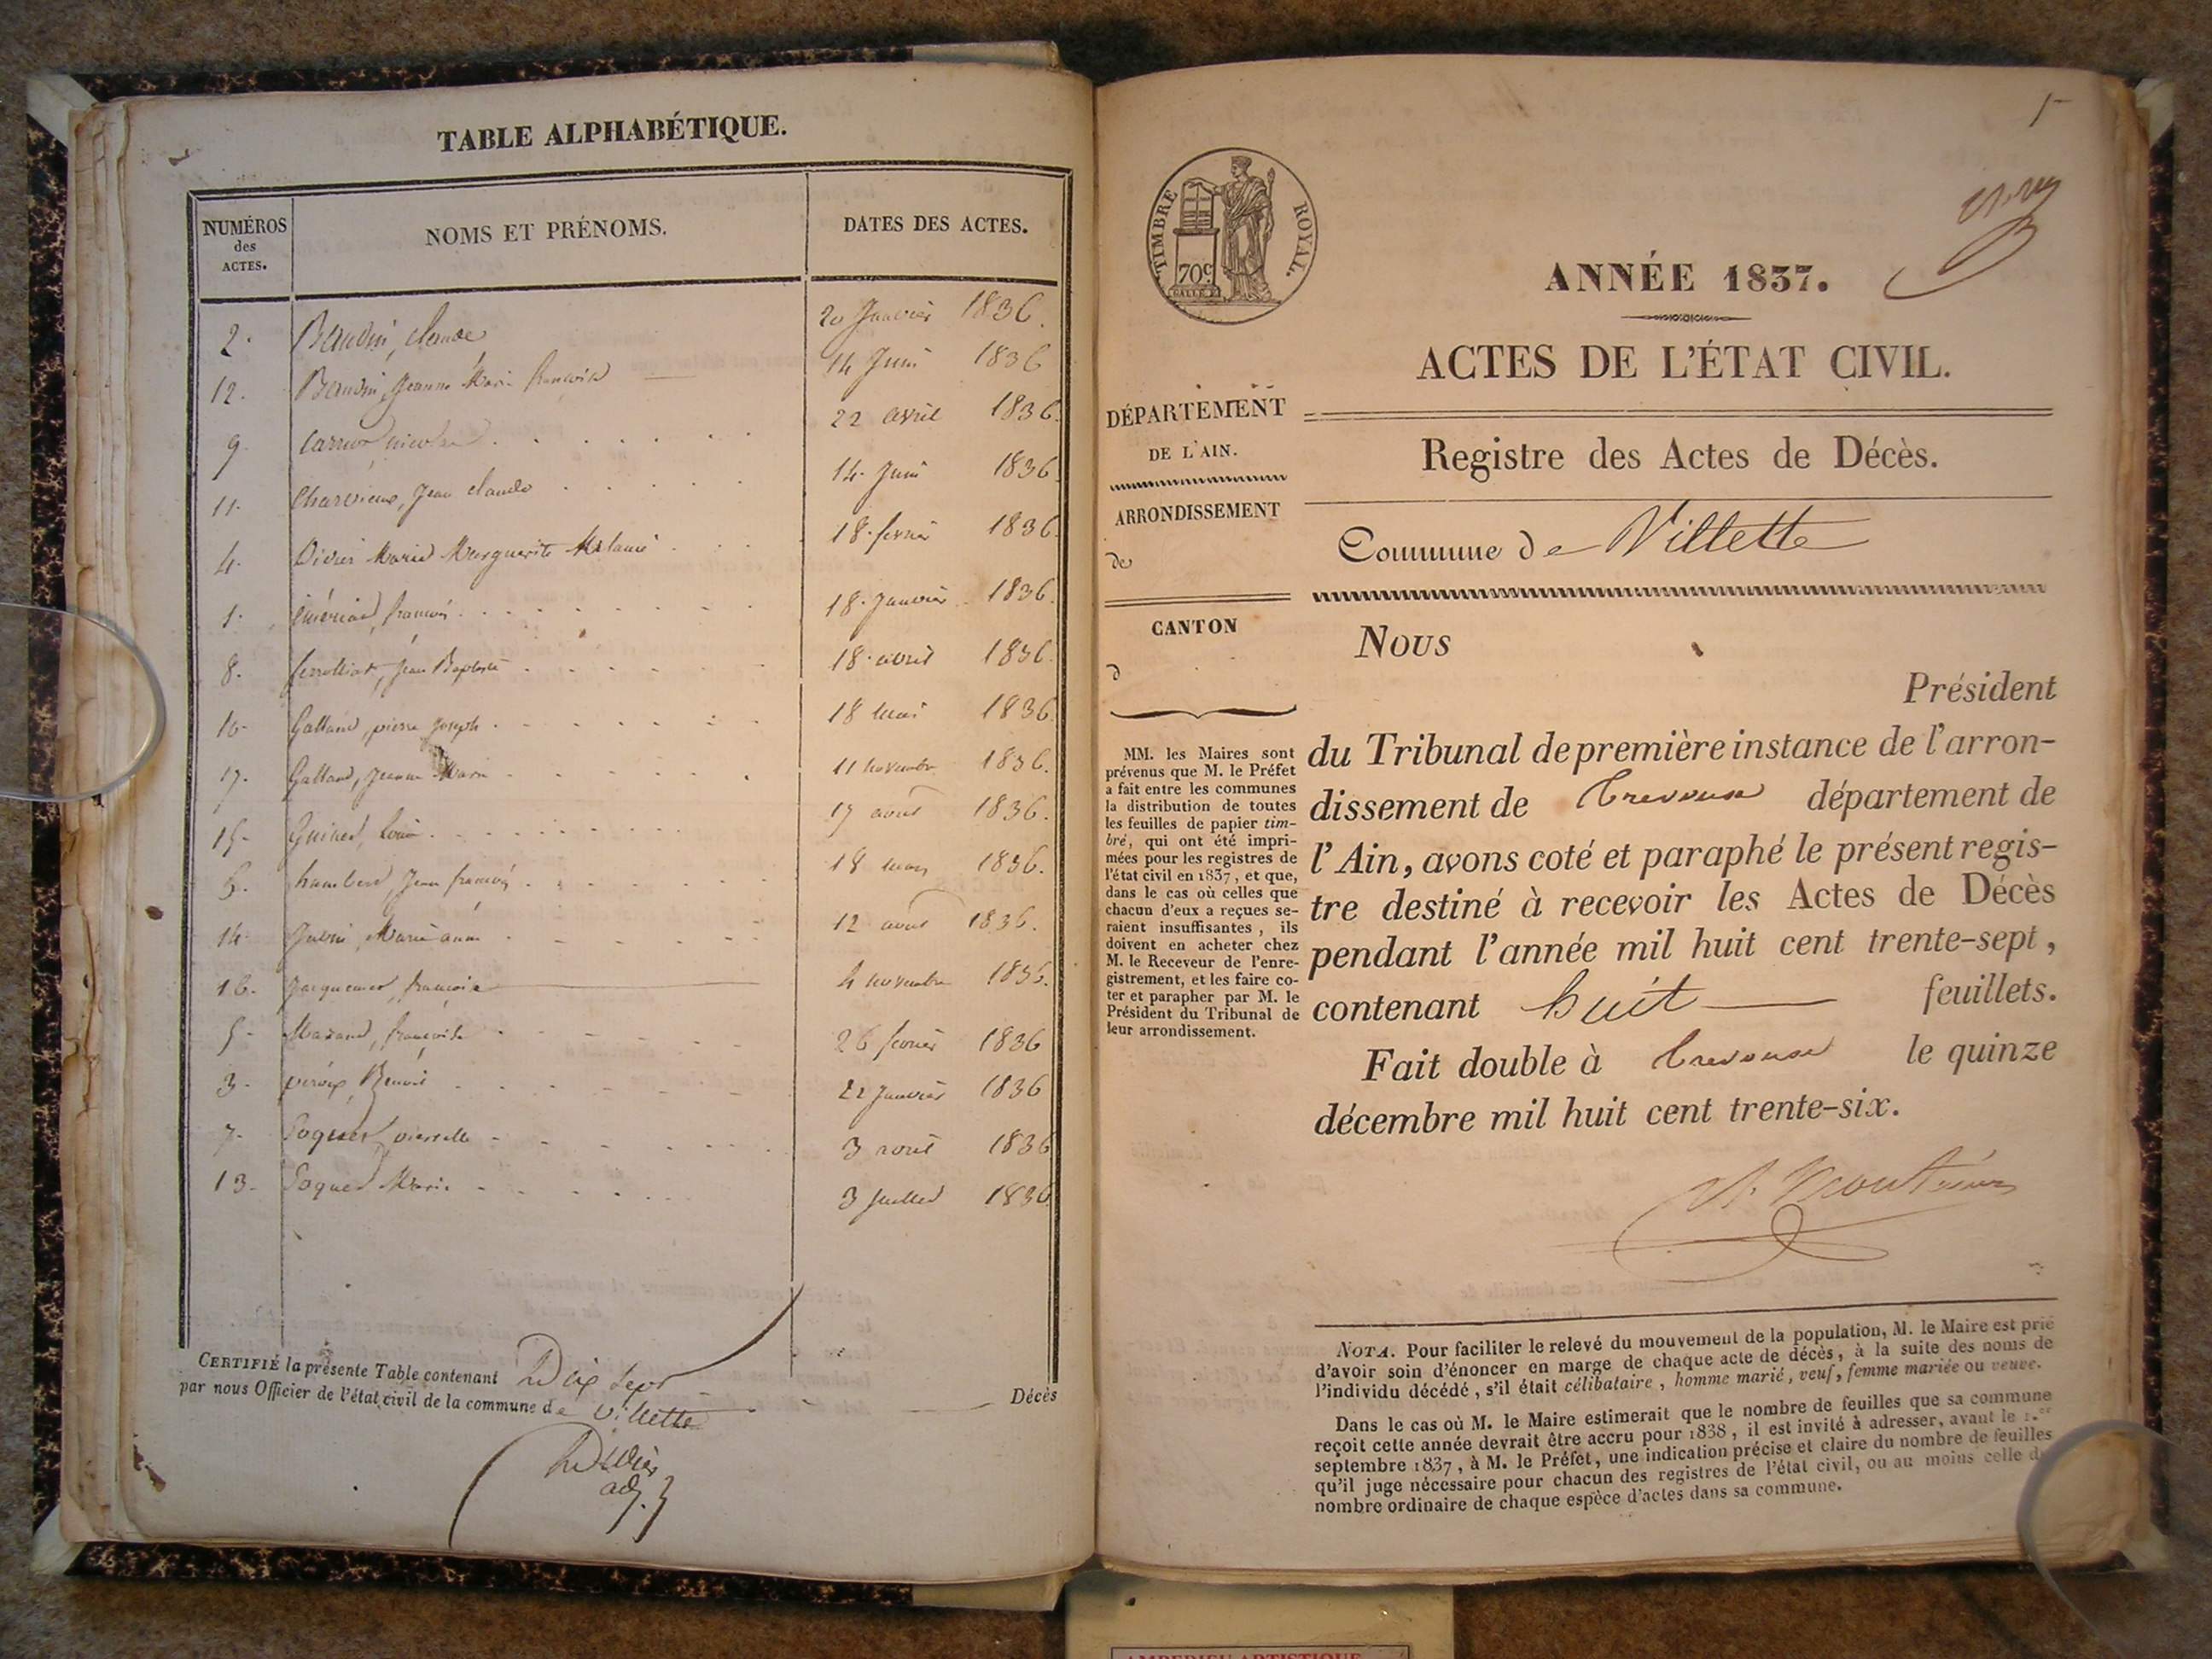 TABLE ALPHABÉTIQUE.
NUMÉROS
des
ACTES.
NOMS ET PRÉNOMS.
DATES DES ACTES.
2. Baudin, claude 20 Janvier 1836.
12. Baudin, Jeanne Marie françoise 14 Juin 1836
9. 22 avril 1836.
11. Charvieux, Jean claude 14 Juin 1836.
4. Didier Marie Marguerite Mélanie 18 février 1836.
1. françois 18 Janvier 1836.
8. Jean Baptiste 18 avril 1836.
10 Galland, pierre Joseph 18 mai 1836.
17. Galland, Jeanne Marie 11 novembre 1836.
15 Louis 17 aout 1836.
6. humbert, Jean françois 18 mars 1836.
14 Marie anne 12 aout 1836.
16. Jacquemet, françoise 4 novembre 1836.
5 françoise 26 février 1836
3 Benoit 22 Janvier 1836
7 pierrette 3 avril 1836
13 Marie 3 Juillet 1836
CERTIFIÉ la présente Table contenant Dix Sept Décès
par nous Officier de l'état civil de la commune de Villette
Didier
adj.
ANNÉE 1837.
ACTES DE L'ÉTAT CIVIL.
TIMBRE ROYAL.
70c
DÉPARTEMENT
DE L'AIN.
ARRONDISSEMENT
de
CANTON
d
MM. les Maires sont
prévenus que M. le Préfet
a fait entre les communes
la distribution de toutes
les feuilles de papier tim-
bré, qui ont été impri-
mées pour les registres de
l'état civil en 1837, et que,
dans le cas où celles que
chacun d'eux a reçues se-
raient insuffisantes, ils
doivent en acheter chez
M. le Receveur de l'enre-
gistrement, et les faire co-
ter et parapher par M. le
Président du Tribunal de
leur arrondissement.
Registre des Actes de Décès.
Commune de Villette
Nous
Président
du Tribunal de première instance de l'arron-
dissement de Trevoux département de
l'Ain, avons coté et paraphé le présent regis-
tre destiné à recevoir les Actes de Décès
pendant l'année mil huit cent trente-sept,
contenant huit feuillets.
Fait double à Trevoux le quinze
décembre mil huit cent trente-six.
NOTA. Pour faciliter le relevé du mouvement de la population, M. le Maire est prié
d'avoir soin d'énoncer en marge de chaque acte de décès, à la suite des noms de
l'individu décédé, s'il était célibataire, homme marié, veuf, femme mariée ou veuve.
Dans le cas où M. le Maire estimerait que le nombre de feuilles que sa commune
reçoit cette année devrait être accru pour 1838, il est invité à adresser, avant le 1.er
septembre 1837, à M. le Préfet, une indication précise et claire du nombre de feuilles
qu'il juge nécessaire pour chacun des registres de l'état civil, ou au moins celle du
nombre ordinaire de chaque espèce d'actes dans sa commune.
AMBERIEU ARTISTIQUE